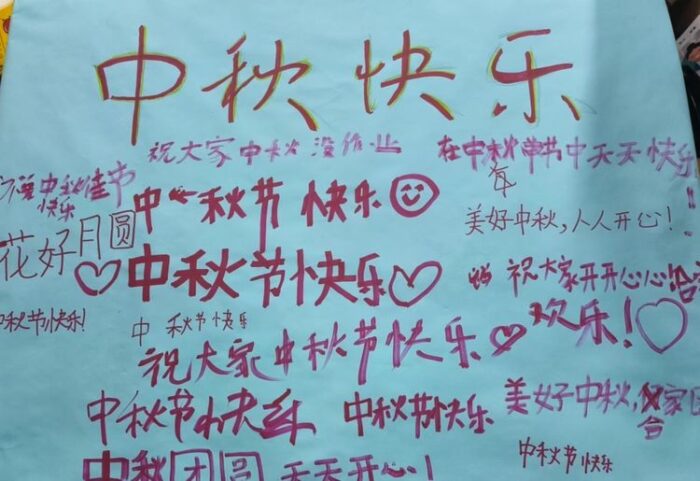 中秋快乐
祝大家中秋没作业
在中秋节中天天快乐!
年
中秋佳节
快乐
中秋节快乐
美好中秋,人人开心!
花好月圆
中秋节快乐
祝大家开开心心
中秋节快乐!
中秋节快乐
欢乐!
祝大家中秋节快乐
美好中秋,家
合
中秋节快乐
中秋节快乐
中秋节快乐
中秋团圆天天开心!